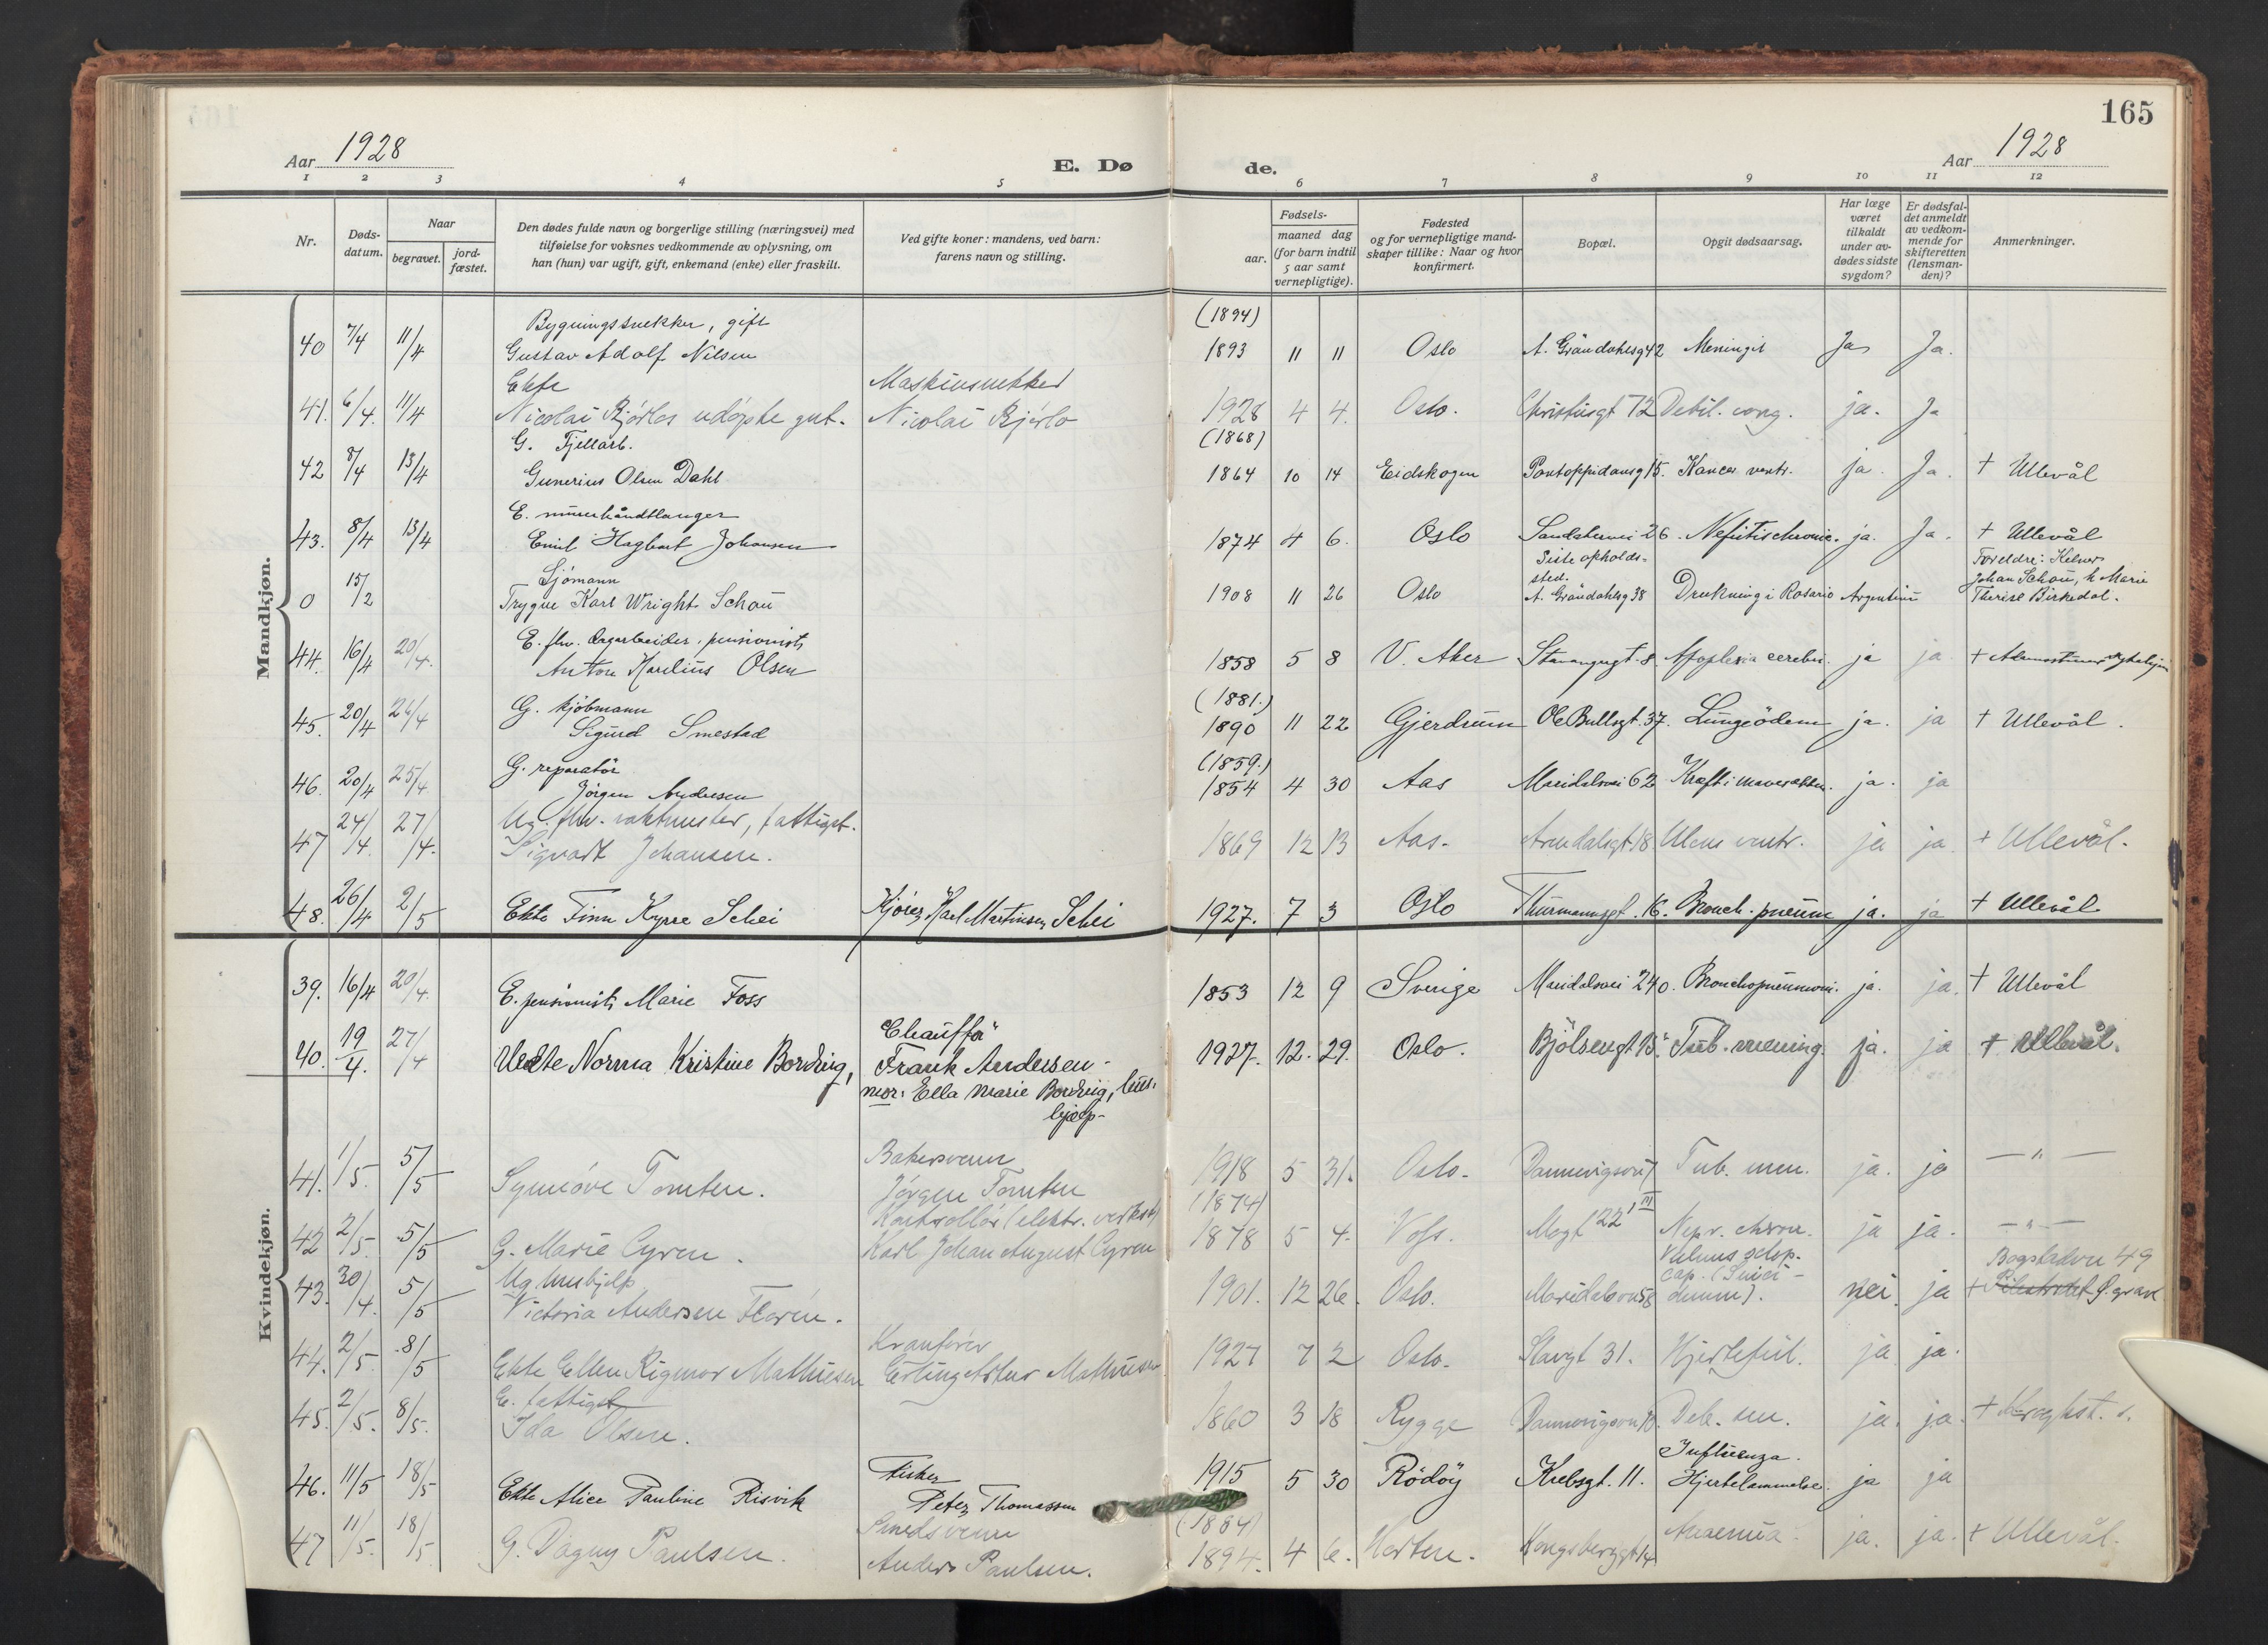 165
Aar 1928
E. Dø
de.
Aar 1928
1 2 3 4 5 6 7 8 9 10 11 12
Nr.
Døds-
datum.
Naar
begravet.
jord-
fæstet.
Den dødes fulde navn og borgerlige stilling (næringsvei) med
tilføielse for voksnes vedkommende av oplysning, om
han (hun) var ugift, gift, enkemand (enke) eller fraskilt.
Ved gifte koner: mandens, ved barn:
farens navn og stilling.
Fødsels-
aar.
maaned dag
(for barn indtil
5 aar samt
vernepligtige).
Fødested
og for vernepligtige mand-
skaper tillike: Naar og hvor
konfirmert.
Bopæl.
Opgit dødsaarsag.
Har læge
været
tilkaldt
under av-
dødes sidste
sygdom?
Er dødsfal-
det anmeldt
av vedkom-
mende for
skifteretten
(lensman-
den)?
Anmerkninger.
Mandkjøn.
Bygningssnekker, gift (1894)
40 7/4 11/4 Gustav Adolf Nilsen 1893 11 11 Oslo A. Gröndahlsg 42 Meningit Ja Ja.
Ekte Maskinsnekker
41. 6/4. 11/4 Nicolai Bjørlos udøpte gut. Nicolai Bjørlo 1928 4 4. Oslo. Christiesgt 72 Debil. cong. ja. Ja
G. Fjellarb. (1868)
42 8/4 13/4 Gunerius Olsen Dahl 1864 10 14 Eidskogen Pontoppidansg 15. Kancer ventr. ja. Ja. + Ullevål
E. murerhåndtlanger
43. 8/4 13/4 Emil Hagbart Johansen 1874 4 6. Oslo Sandakervei 26. Nefritis chronic. ja. Ja. + Ullevål
Sjömann Siste opholds-
sted. Foreldre: Kelner
Johan Schou, h Marie
0 15/2 Trygve Karl Wright Schou 1908 11 26 Oslo A. Gröndahlsg 38 Drukning i Rosario Argentina Therese Birkedal.
E. fhv. pensionist
44. 16/4 20/4. Anton Karelius Olsen 1858 5 8 V. Aker Stavangergt. 8. Apoplexia cerebri. ja ja +
G. kjöbmann (1881.)
45. 20/4 26/4 Sigurd Smestad 1890 11 22 Gjerdrum Ole Bullsgt. 37. Lungeödem ja. ja + Ullevål.
G. reparatör (1859.)
46. 20/4 25/4 Jörgen Andresen 1854 4 30 Aas Maridalsvei 62 Kræft i mavesækken. ja. ja
Ug. fhv. vaktmester, fattigst.
47 24/4. 27/4. Sigvart Johansen. 1869 12 13 Aas. Arendalsgt 18 Ulcus ventr. ja ja. + Ullevål.
48. 26/4 2/5 Ekte Finn Kyrre Schei Kjörer Karl Martinsen Schei 1927. 7 3 Oslo Thurmannsgt. 16. Bronch. pneum ja. ja + Ullevål
Kvindekjøn.
39. 16/4 20/4. E. pensionist Marie Foss 1853 12 9 Sverige Maridalsvei 240. Bronchopneumoni. ja. ja. + Ullevål
Chaufför
40. 19/4. 27/4 Uekte Norma Kristine Bordvig, Frank Andersen - 1927. 12. 29. Oslo. Bjölsengt 15. Tub. mening. ja. ja + Ullevål.
mor: Ella Marie Bordvig, hus.
hjælp-
Bakersvenn
41. 1/5. 5/5 Synnöve Tomter. Jörgen Tomter 1918 5 31. Oslo. Dannevigsv 7 Tub. men. ja. ja — " —
Kontrollör (elektr. verkst) (1874)
42 2/5. 5/5 G. Marie Cyren. Karl Johan August Cyren 1878 5 4. Voss. Mogt 22 III Nepr. chron. ja ja. — " —
Ug. hushjelp Vulnus sclop. Bogstadvn 49
cap. (Suici-
43. 30/4. 5/5 Victoria Andersen Floren. 1901. 12 26. Oslo. Maridalsvn 58 dium). nei. ja + f. grave
Kranfører
44. 2/5 8/5 Ekte Ellen Rigmor Mathiesen Erling Artur Mathiesen 1927 7 2 Oslo. Slavgt 31. Hjertefeil. ja ja.
E. fattigst
45. 2/5. 8/5. Ida Olsen. 1860 3 18 Rygge Dannevigsvn 10. Deb. sen. ja. ja. + Kroghst. s.
Fisker Influenza.
46. 11/5 18/5 Ekte Alice Pauline Risvik Peter Thomassen 1915 5 30 Rödöy Krebsgt. 11. Hjertelammelse. ja ja
Smedsvenn (1884)
47 11/5. 18/5 G. Dagny Paulsen. Anders Paulsen. 1894. 4 6. Horten. Kongsberggt 14 Anaemia. ja. ja. + Ullevål.